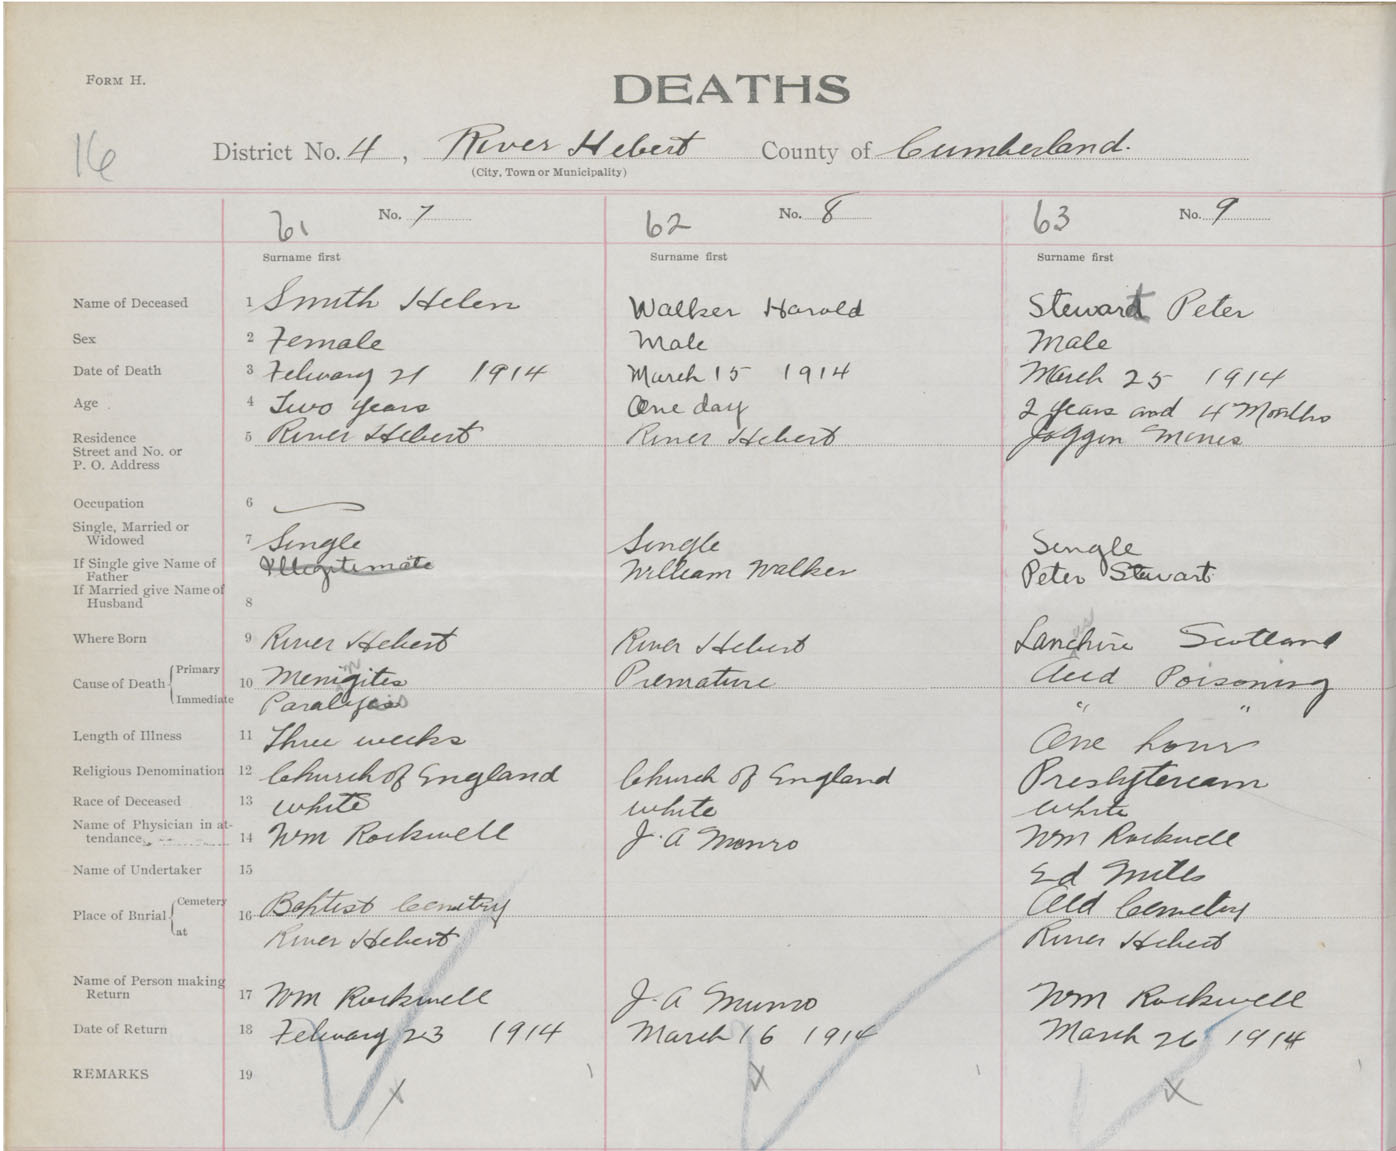 FORM H.
DEATHS
16
District No. 4, River Hebert County of Cumberland.
(City, Town or Municipality)
61 No. 7 62 No. 8 63 No. 9
Surname first Surname first Surname first
Name of Deceased 1 Smith Helen Walker Harold Stewart Peter
Sex 2 Female Male Male
Date of Death 3 Febuary 21 1914 March 15 1914 March 25 1914
Age 4 Two years One day 2 years and 4 Months
Residence 5 River Hebert River Hebert Joggin Mines
Street and No. or
P. O. Address
Occupation 6
Single, Married or
Widowed 7 Single Single Single
If Single give Name of
Father Illegitimate William Walker Peter Stewart
If Married give Name of
Husband 8
Where Born 9 River Hebert River Hebert Scotland
Cause of Death Primary 10 Menigites Premature Acid Poisoning
Immediate Paralysis " "
Length of Illness 11 Three weeks One hour
Religious Denomination 12 Church of England Church of England Presbyteriam
Race of Deceased 13 white white white
Name of Physician in at-
tendance 14 Wm Rockwell J. A Monro Wm Rockwell
Name of Undertaker 15 Ed Mills
Place of Burial Cemetery 16 Baptist Cemetry Old Cemetry
at River Hebert River Hebert
Name of Person making
Return 17 Wm Rockwell J. A Munro Wm Rockwell
Date of Return 18 Febuary 23 1914 March 16 1914 March 26 1914
REMARKS 19 x x x